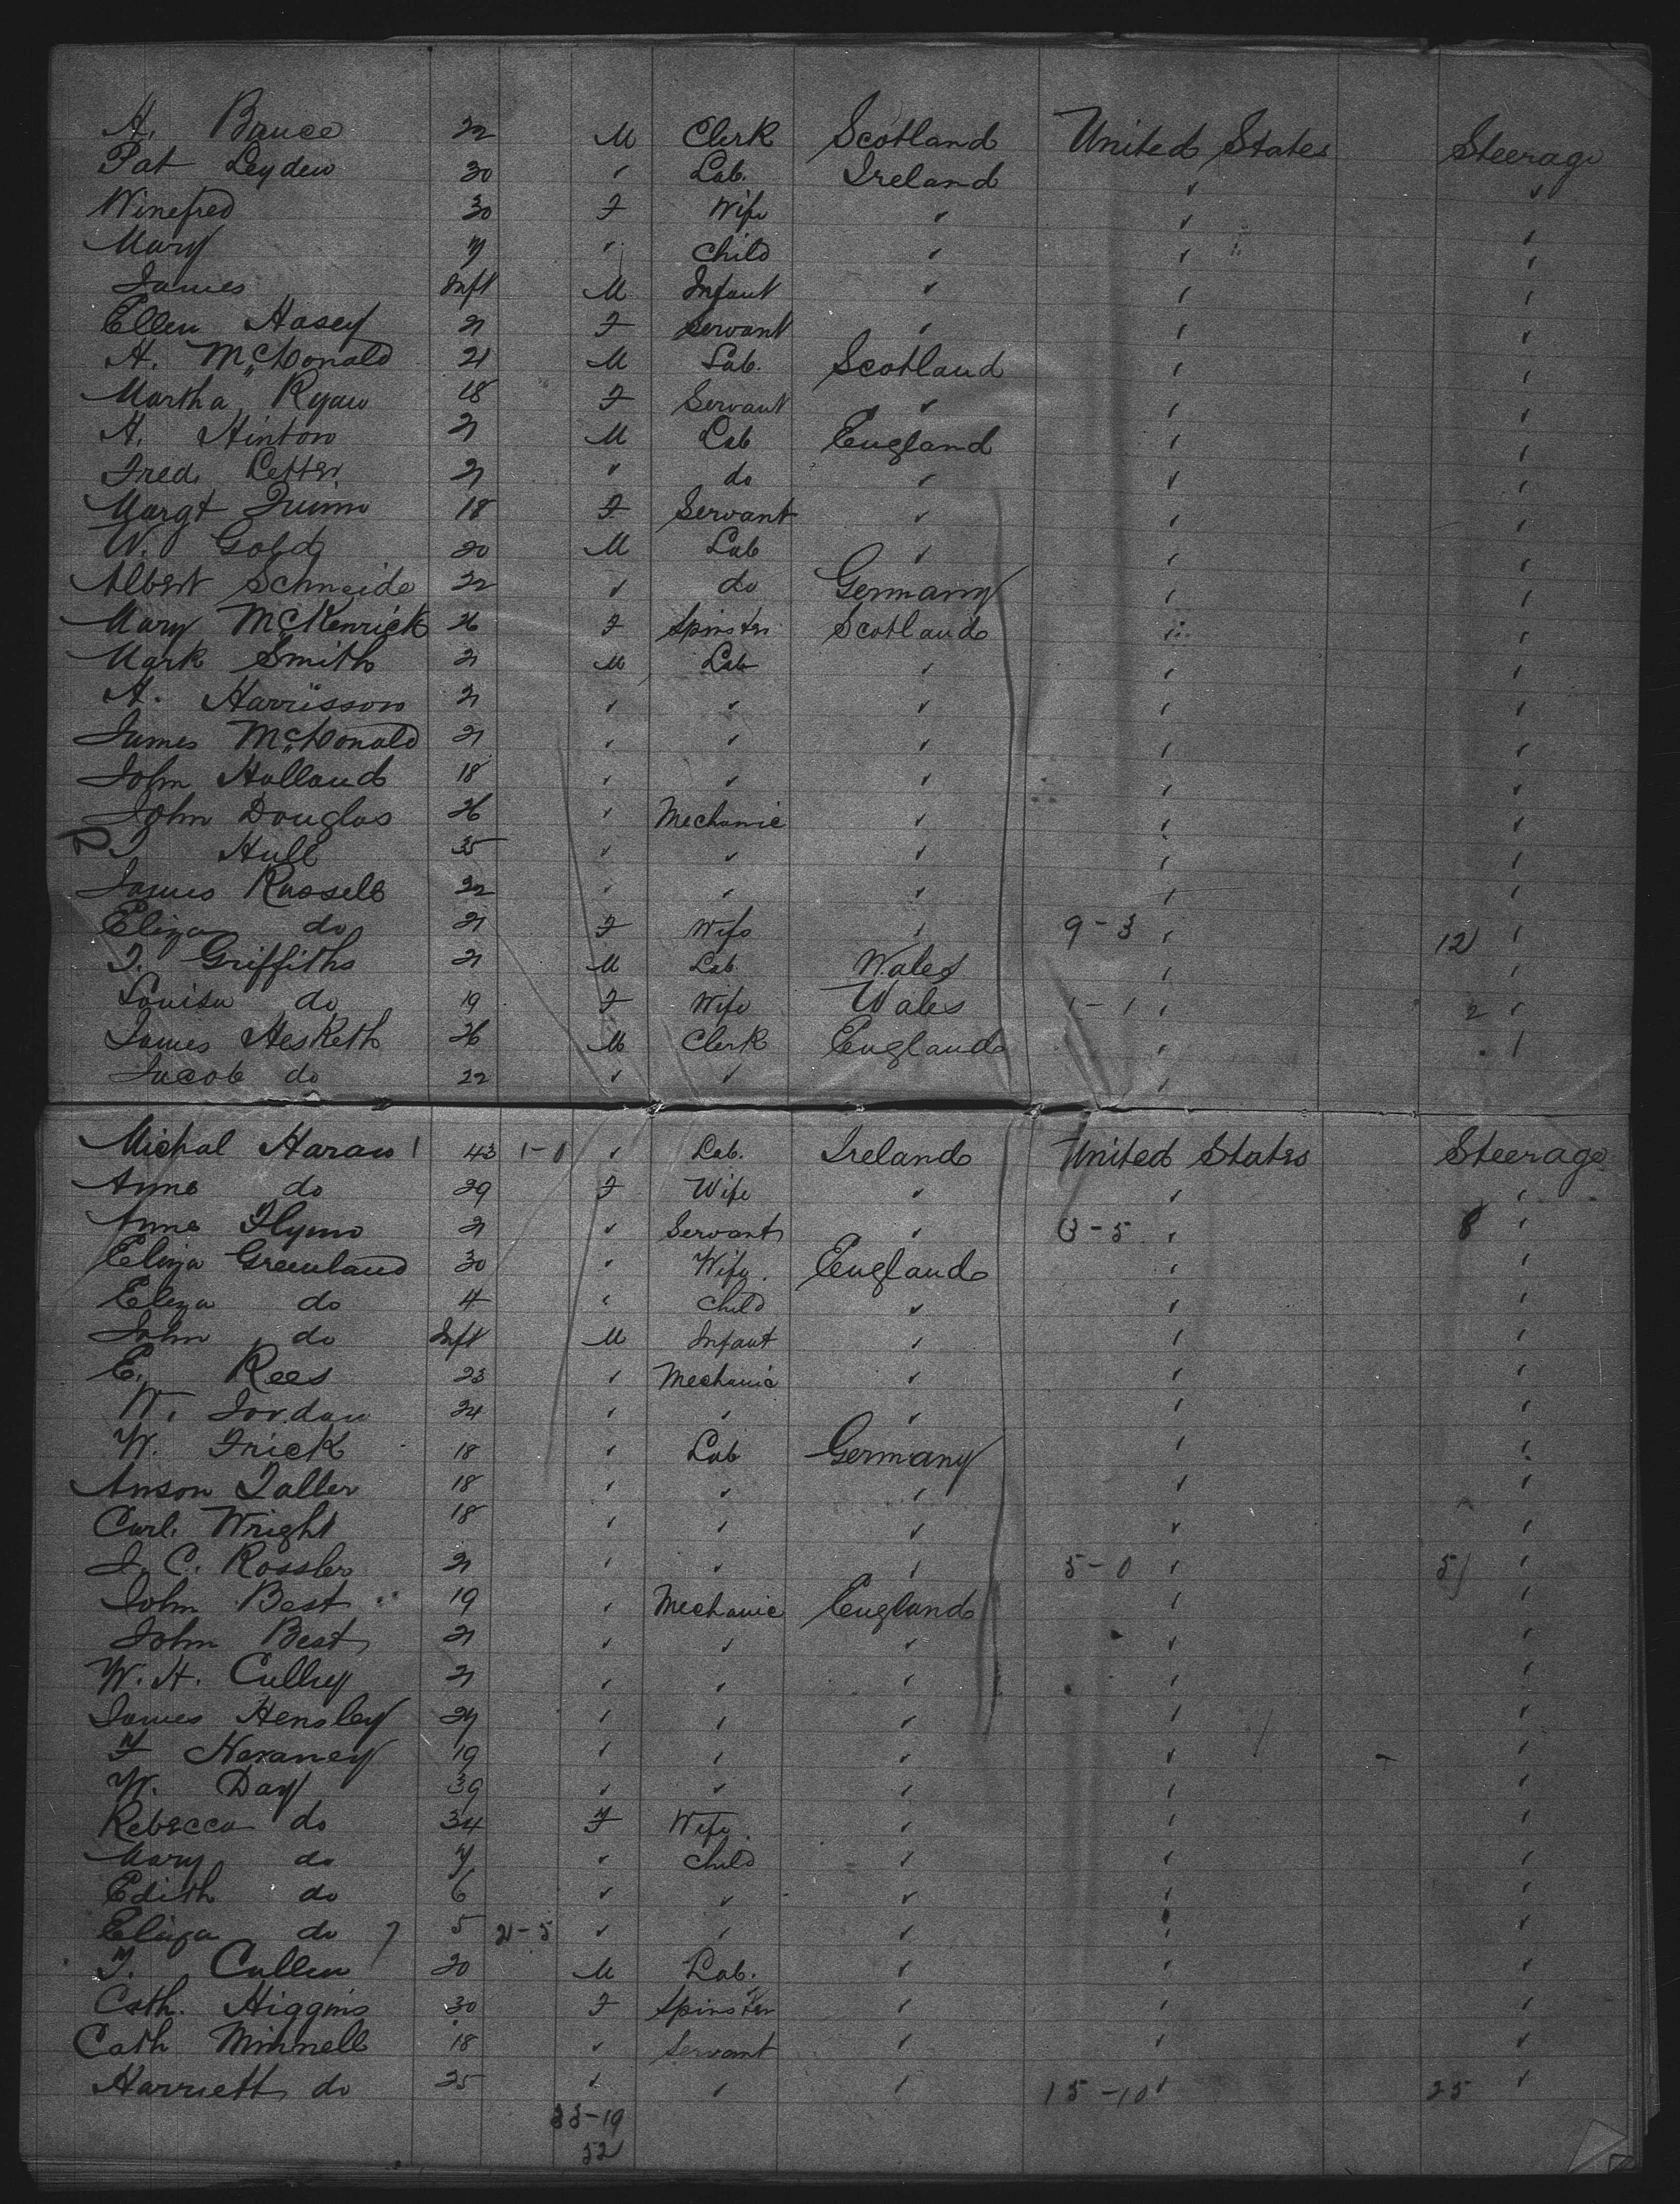 A. Bauce 22 M Clerk Scotland United States Steerage
Pat Leyden 30 " Lab. Ireland " "
Winefred 30 F Wife " " "
Mary 7 " Child " " "
James Inft M Infant " " "
Ellen Hasey 21 F Servant " " "
A. McDonald 21 M Lab. Scotland " "
Martha Ryan 18 F Servant " " "
A. Hinton 21 M Lab England " "
Fred. Letter 21 " do " " "
Margt Quinn 18 F Servant " " "
W. Gold 20 M Lab " " "
Albert Schneide 22 " do Germany " "
Mary McKenrick 26 F Spinster Scotland " "
Mark Smith 21 M Lab " " "
A. Harrisson 21 " " " " "
James McDonald 21 " " " " "
John Holland 18 " " " " "
John Douglas 26 " Mechanic " " "
Hull 35 " " " " "
James Russell 22 " " " " "
Eliza do 21 F Wife " 9-3 " 12 "
T. Griffiths 21 M Lab. Wales " "
Louisa do 19 F Wife Wales 1-1 " 2 "
James Hesketh 26 M Clerk England " "
Jacob do 22 " " "
Michal Haran 1 43 1-0 " Lab. Ireland United States Steerage
Anne do 29 F Wife " " "
Anne Flynn 21 " Servant " 3-5 " 8 "
Eliza Greenland 30 " Wife. England " "
Eliza do 4 " Child " " "
John do Inft M Infant " " "
E. Rees 23 " Mechanic " " "
W. Jordan 24 " " " " "
W. Frick 18 " Lab Germany " "
Anson Taller 18 " " " " "
Carl. Wright 18 " " " " "
J. C. Rossler 21 " " " 5-0 " 5 "
John Best 19 " Mechanic England " "
John Best 21 " " " " "
W. H. Culley 21 " " " " "
James Hensley 24 " " " " "
F Heraney 19 " " " " "
W. Day 39 " " " " "
Rebecca do 34 F Wife " " "
Mary do 7 " Child " " "
Edith do 6 " " " " "
Eliza do 7 5 2-5 " " " " "
F. Cullen 20 M Lab. " " "
Cath. Higgins 30 F Spinster " " "
Cath Minnell 18 " Servant " " "
Harriett do 25 " " " 15-10 " 25 "
33-19
52